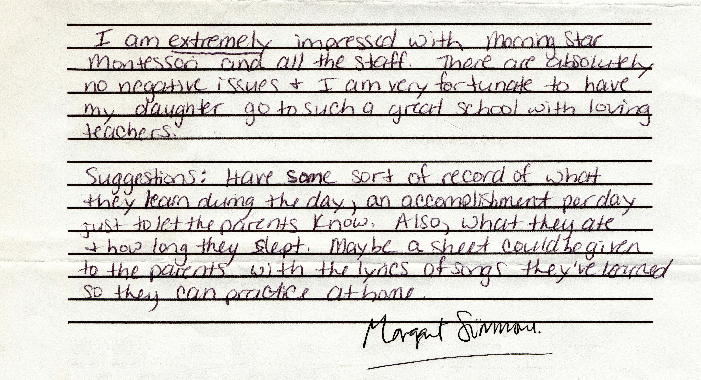 I am extremely impressed with Morning Star
Montessori and all the staff. There are absolutely
no negative issues + I am very fortunate to have
my daughter go to such a great school with loving
teachers.
Suggestions: Have some sort of record of what
they learn during the day, an accomplishment per day
just to let the parents know. Also, what they ate
+ how long they slept. Maybe a sheet could be given
to the parents with the lyrics of songs they've learned
so they can practice at home.